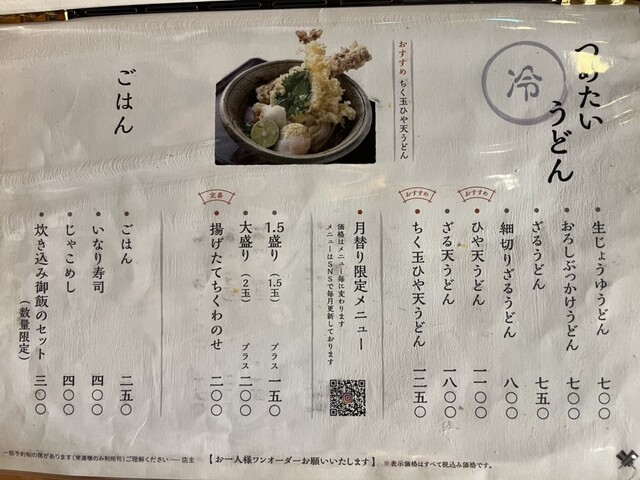 つめたい
うどん
冷
生じょうゆうどん 七〇〇
おろしぶっかけうどん 七〇〇
ざるうどん 七五〇
細切りざるうどん 八〇〇
おすすめ
ひや天うどん 一一〇〇
ざる天うどん 一八〇〇
おすすめ
ちく玉ひや天うどん 一二五〇
おすすめ ちく玉ひや天うどん
月替り限定メニュー
価格はメニュー毎に変わります
メニューはSNSで毎月更新しております
1.5盛り(1.5玉) プラス 一五〇
大盛り(2玉) プラス 二〇〇
定番
揚げたてちくわのせ 二〇〇
ごはん
ごはん 二五〇
いなり寿司 四〇〇
じゃこめし 四〇〇
炊き込み御飯のセット 三〇〇
(数量限定)
一部予約制の席があります(常連様のみ利用可)ご理解ください― 店主
【お一人様ワンオーダーお願いいたします】
※表示価格はすべて税込み価格です。